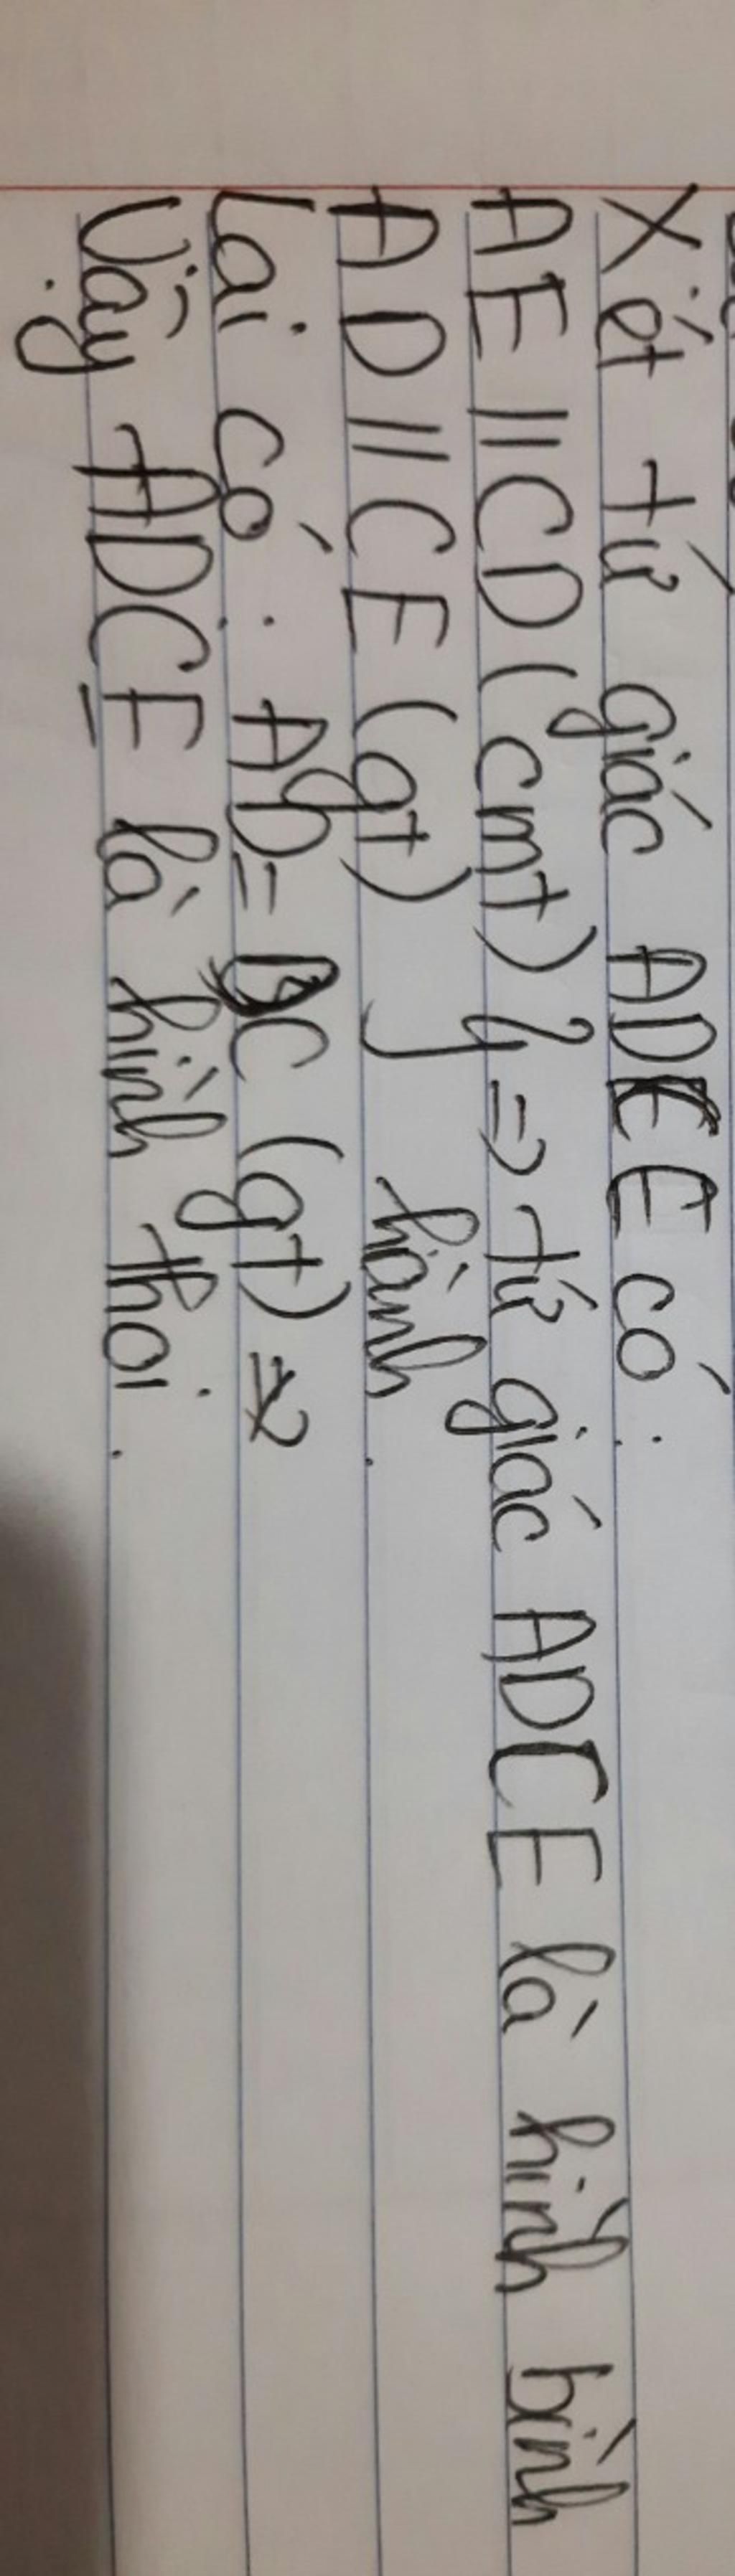 Xét tứ giác ADCE có:
AE // CD (cmt) } => tứ giác ADCE là hình bình
AD // CE (gt) hành.
Lại có: AD = DC (gt) =>
Vậy ADCE là hình thoi.